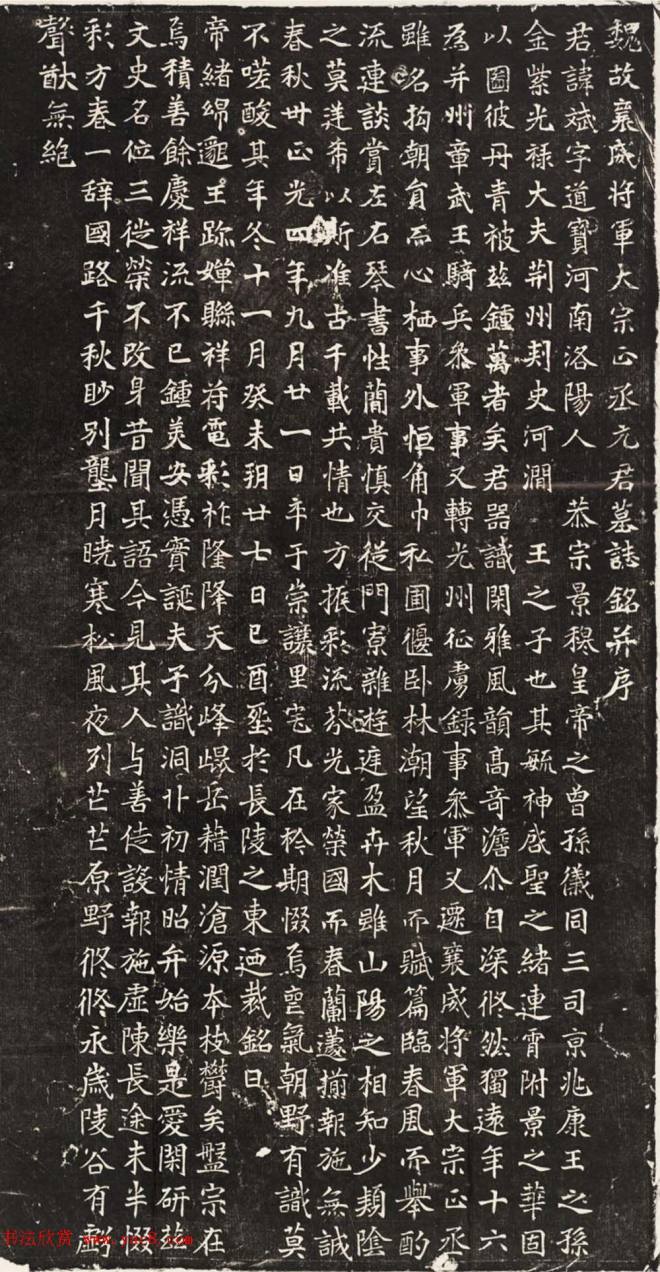 魏故襄威将軍大宗正丞元君墓誌銘并序
君諱斌字道寶河南洛陽人　恭宗景穆皇帝之曾孫儀同三司京兆康王之孫
金紫光祿大夫荆州刾史河澗　王之子也其毓神啟聖之緒連霄附景之華固
以圖彼丹青被茲鍾萬者矣君器識閑雅風韻高奇澹尒自深悠然獨遠年十六
為并州章武王騎兵叅軍事又轉光州征虜録事叅軍又遷襄威将軍大宗正丞
雖名拘朝員而心栖事外恒角巾私圃偃卧林潮望秋月而賦篇臨春風而舉酌
流連談賞左右琴書性蕳貴慎交從門寮雜遊庭盈卉木雖山陽之相知少頪陰
之莫逹希以斯准古千載共情也方振彩流芬光家榮國而春蘭萋揃報施無誠
春秋卅正光四年九月廿一日卒于崇讓里宅凡在衿期惙焉壺氣朝野有識莫
不嗟酸其年冬十一月癸未朔廿七日己酉堲於長陵之東迺裁銘曰
帝緒綿邈王跡嬋聯祥符電彩祚隆降天分峰㠎岳藉潤滄源本枝欝矣盤宗在
焉積善餘慶祥流不已鍾美安憑實誕夫子識洞卝初情昭弁始樂是愛閑研茲
文史名位三從榮不改身昔聞其語今見其人与善徒設報施虛陳長途未半惙
彩方春一辞國路千秋眇別壟月曉寒松風夜列芒芒原野悠悠永歲陵谷有虧
聲猷無絕
书法欣赏 www.yac8.com